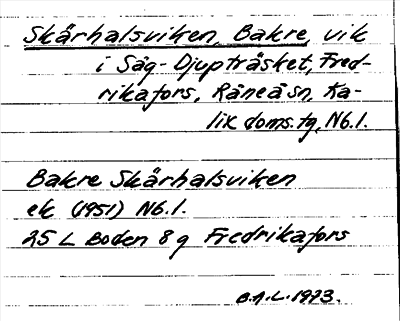 Skärhalsviken, Bakre, vik
i Såg-Djupträsket, Fred-
rikafors, Råneå sn, Ka-
lix doms.tg, Nb.l.
Bakre Skärhalsviken
ek (1951) Nb.l.
25 L Boden 8 g Fredrikafors
B.A.L. 1973.